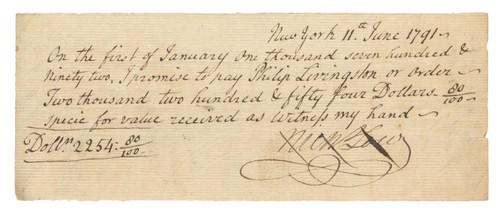 New York 11.th June 1791.
On the first of January One thousand seven hundred &
ninety two, I promise to pay Philip Livingston or order
Two thousand two hundred & fifty four Dollars 80/100
specie for value received as Witness my hand
Dollrs 2254: 80/100